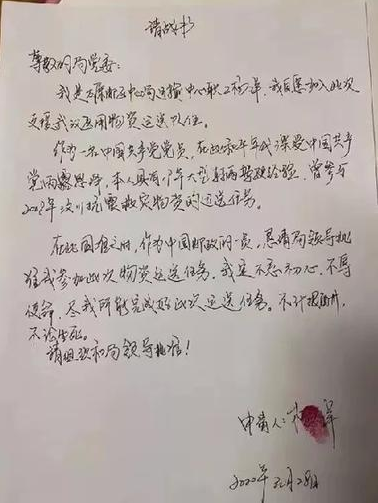 请战书
尊敬的局党委：
我是太原邮区中心局运输中心职工杨, 我自愿加入此次
支援武汉医用物资运送队伍。
作为一名中国共产党党员，在政和年代深受中国共产
党雨露恩泽，本人具有17年大型邮车驾驶经验，曾参与
2008年汶川抗震救灾物资的运送任务。
在此国难之时，作为中国邮政的一员，恳请局领导批
准我参加此次物资运送任务，我定不忘初心，不辱
使命，尽我所能完成好此次运送任务。不计报酬，
不论生死。
请组织和局领导批准！
申请人：
2020年元月28日